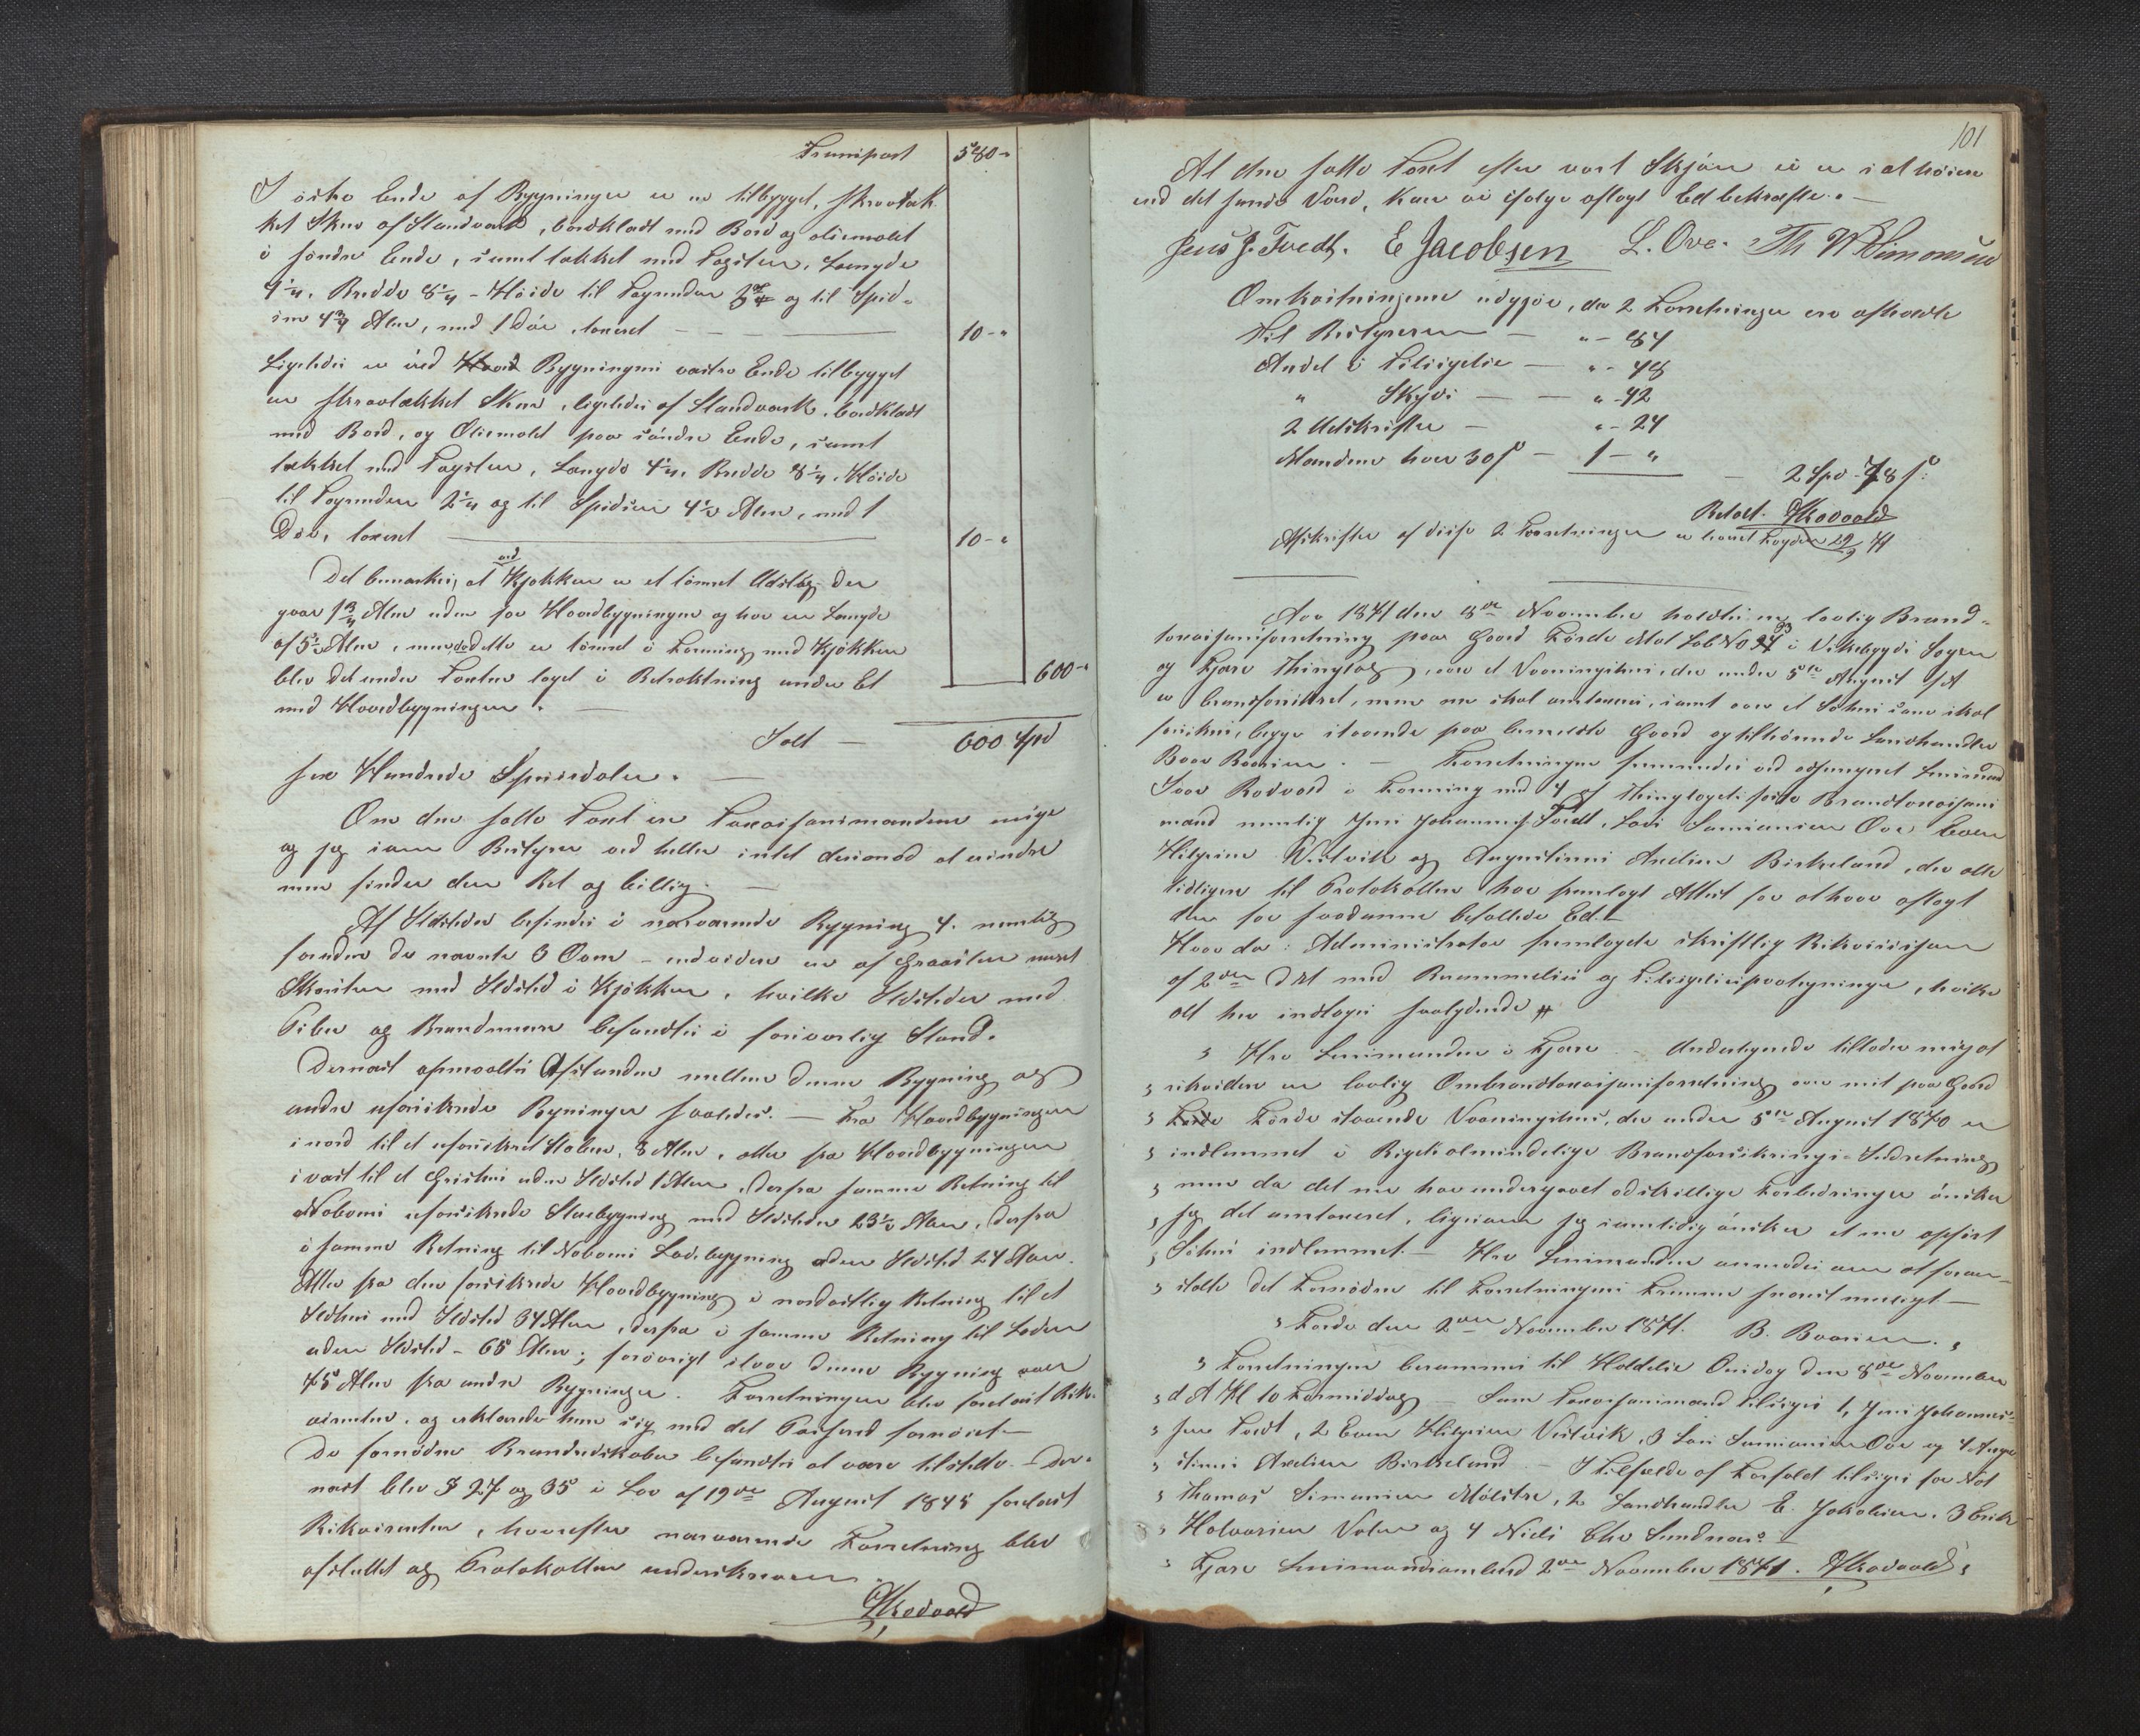 Transport 580 -
I østre Ende af Bygningen er en tilbygget, skraatæk-
ket Skur af Standværk, bordklædt med Bord og oliemalet
i søndre Ende, samt takket med Tagsten. Længde
4¼. Bredde 8¼ - Høide til Tagrenden og til Spid-
sen 4¾ Alen, med 1 Dör, taxeret — 10 - "
Ligeledes er ved Bygningens vestre Ende tilbygget
en skraatækket Skur, ligeledes af Standværk, bordklædt
med Bord, og Oliemalet paa søndre Ende, samt
takket med Tagsten, Længde 4¼. Bredde 8¼. Høide
til Tagrenden 2¼ og til Spidsen 4½ Alen, med 1
Dör, taxeret — 10 - "
Det bemærkes, at ved Kjøkken er et tömret Udslag, der
gaar 1¾ Alen uden for Hovedbygningen og har en Længde
af 5½ Alen, men da dette er tömret i Forening med Kjøkken
blev det under Taxten taget i Betraktning under Et 600 -
med Hovedbygningen. —
Salt — 600 Spd
sex Hundrede Speciedaler. —
Om den satte Taxt er Taxasjonsmændene enige
og jeg som Bestyrer ved heller intet derimod at erindre
men finder den Ret og billig. —
Af Ildsteder befindes i nærværende Bygning 4. nemlig
foruden de nævnte 3 Ovne - endvidere en af Graasten muret
Skorsten med Ildsted i Kjøkken, hvilke Ildsteder med
Piber og Brandmure befandtes i forsvarlig Stand.
Dernæst opmaaltes Afstanden mellem denne Bygning og
andre uforsikrede Bygninger saaledes. — Fra Hovedbygningen
i nord til et uforsikret Stabur, 8 Alen, atter fra Hovedbygningen
i vest til et Grishus uden Ildsted 1 Alen, derfra samme Retning til
Naboens uforsikrede Stuebygning med Ildsteder 23½ Alen, derfra
i samme Retning til Naboens Ladebygning uden Ildsted 24 Alen.
Atter fra den forsikrede Hovedbygning i nordostlig Retning til et
Ildhus med Ildsted 34 Alen, derfra i samme Retning til Laden
uden Ildsted - 65 Alen; forøvrigt staar denne Bygning over
75 Alen fra andre Bygninger. Forretningen blev forelæst Rek-
virenten, og erklærede han sig med det Passerede fornöiet —
De fornödne Brandredskaber befandtes at være tilstede. — Der-
næst blev § 27 og 35 i Lov af 19de August 1845 forelæst
Rekvirenten, hvorefter nærværende Forretning blev
afsluttet og Protokollen underskreven.
Rødvold
101
At den satte Taxt efter vort Skjön ei er sat höiere
end det sande Værd, kan vi ifølge aflagt Ed bekræfte. —
Jens J. Tvedt. E Jacobsen L. Ove. Th W Simonsen
Omkostningerne udgjör, da 2 Forretninger ere afholdte
Til Bestyreren — " - 84
Andel i Tilsigelse — " - 48
" Skyds — — " - 42
2 Udskrifter — " - 24
Mændene hver 30 s — 1 - "
— 2 Spd - 78 s.
Betalt. Rødvold
Afskrifter af disse 2 Forretninger er sendt Fogden 29/9 71
Aar 1871 den 8de November holdtes en lovlig Brand-
taxasjonsforretning paa Gaard Förde Mat Löb No i Vikebygds Sogn
og Fjære Thinglag, over et Vaaningshus, der under 5te August f A
er brandforsikret, men nu skal omtaxeres, samt over et Söhus som skal
forsikres, begge staaende paa bemeldte Gaard og tilhörende Landhandler
Baar Baarsen. — Forretningen fremmedes ved adjungeret Lensmand
Ivar Rødvold i Forening med 4 af Thinglagets faste Brandtaxasjons
mænd nemlig Jens Johannes Tvedt, Lars Samsonsen Ove, Even
Helgesen Vestvik og Augustinus Arelius Birkeland, der alle
tidligere til Protokollen har fremlagt Attest for at have aflagt
den for saadanne befallede Ed. —
Hvor da: Administrator fremlagde skriftlig Rekvisisjon
af 2den d M med Berammelses og Tilsigelsespaategninger, hvilke
alt her indtages saalydende #
" Hr Lensmanden i Fjære. — Undertegnede tillader mig at
" rekvirere en lovlig Ombrandtaxasjonsforretning over mit paa Gaard
" Förde staaende Vaaningshus, der under 5te August 1870 er
" indlemmet i Rigets almindelige Brandforsikrings-Indretning
" men da det nu har undergaaet adskillige Forbedringer önsker
" jeg det omtaxeret, ligesom jeg samtidig önsker et nu opfört
" Söhus indlemmet. — Hr Lensmanden anmodes om at foran-
" stalte det Fornödne til Forretningens Fremme snarest muligt —
" Förde den 2den November 1871. B. Baarsen. "
" Forretningen berammes til Holdelse Onsdag den 8de November
" d A Kl 10 Formiddag — Som Taxasjonsmænd tilsiges 1, Jens Johannes-
" sen Tvedt, 2 Even Helgesen Vestvik, 3 Lars Samsonsen Ove og 4 Augu
" stinus Arelius Birkeland — I Tilfælde af Forfald tilsiges for No 1
" Thomas Simonsen Mölstre, 2 Landhandler E. Jakobsen, 3 Erik
" Halvorsen Valen og 4 Niels Sundnæs. —
" Fjære Lensmandsombud 2den November 1871. Rødvold "